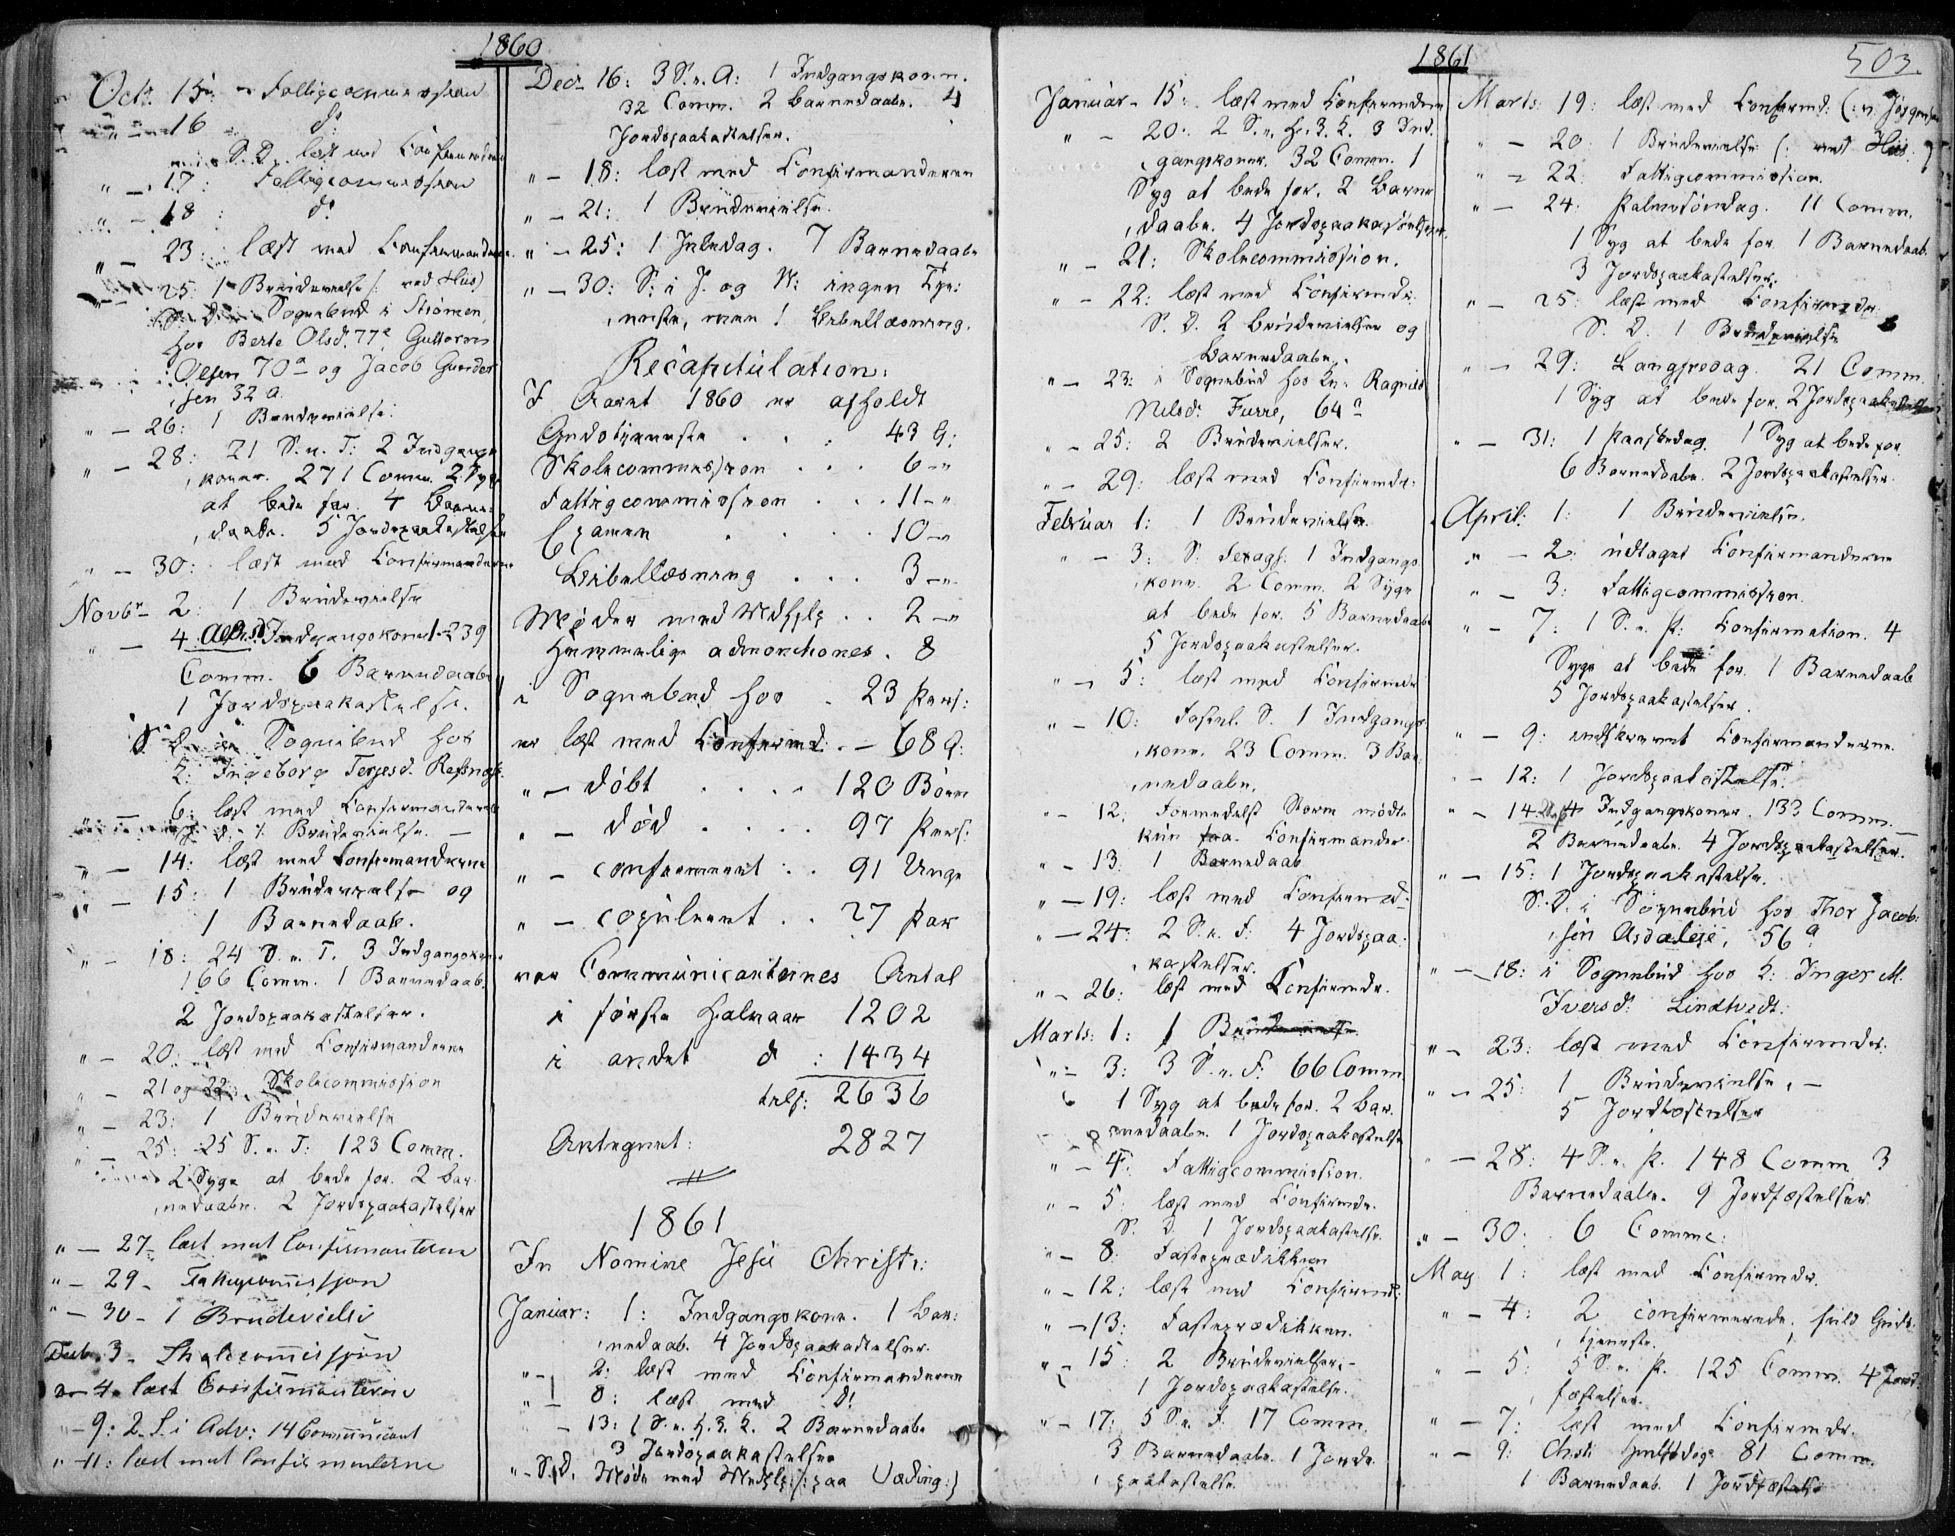 1860
Octr. 15: Fattigcommission
" - 16 do
S. D. læst med Confirmanderne
" - 17: Fattigcommission
" - 18: do
" - 23: læst med Confirmanderne
" - 25: 1 Brudevielse (: ved Huus)
S. d. i Sognebud i Strömen,
hos Berte Olsd. 77a Guttorm
Olsen 70a og Jacob Gunder
sen 32 a.
" - 26: 1 Brudevielse.
" - 28: 21 S. e. T: 2 Indgangs
koner. 271 Comm. 2 Syge
at bede for. 4 Barne
daabe. 5 Jordspaakastelser
" - 30: læst med Confirmanderne
Novbr - 2: 1 Brudevielse
" - 4. Indgangskone 1 - 239
Comm. 6 Barnedaabe
1 Jordspaakastelse.
S. d. i Sognebud hos
Ingeborg Terjesd. Refsnæs.
6: læst med Confirmanderne
S. d. 1 Brudevielse. -
" - 14: læst med Confirmanderne
" - 15: 1 Brudevielse og
1 Barnedaab.
" - 18: 24 S. e. T. 3 Indgangskoner
166 Comm. 1 Barnedaab.
2 Jordspaakastelser.
" - 20: læst med Confirmanderne
" - 21 og 22: Skolecommission
" - 23: 1 Brudevielse
" - 25: 25 S. e. T: 123 Comm.
2 Syge at bede for. 2 Bar
nedaabe. 2 Jordspaakastelser
" - 27 - læst met Confirmanterne
" - 29 - Fattigcommissjon
" - 30 - 1 Brudevielse
Decb. 3 - Skolecommissjon
" - 4. læst Confirmanterne
" - 9: 2 S. i Adv: 14 Communicant
" - 11: læst met Confirmanterne
Decr 16: 3 S. i A: 1 Indgangskone.
32 Comm. 2 Barnedaabe. 4
Jordspaakastelser.
" - 18: læst med Confirmanderne
" - 21: 1 Brudevielse.
" - 25: 1 Juledag. 7 Barnedaabe
" - 30: S: i J. og N: ingen Tje:
neste, men 1 Bibellæsning.
Recapitulation:
I Aaret 1860 er afholdt
Gudstjeneste . . . 43 G:
Skolecommission . . . 6 - "
Fattigcommission . . . 11 - "
Examen . . . . 10 - "
Bibellæsning . . . 3 - "
Möder med Medhjelp . . 2 - "
Hemmelige admonitiones . 8
i Sognebud hos . 23 Pers:
er læst med Confirmd. . - 68 G:
" - döbt . . . . 120 Börn
" - död . . . . 97 Pers:
" - confirmeret . . 91 Unge
" - copuleret . . 27 Par
var Communicanternes Antal
i förste Halvaar 1202
i andet do : 1434
tils: 2636
Antegnet: 2827
1861
In Nomine Jesu Christi:
Januar: 1: Indgangskone. 1 Bar:
nedaab. 4 Jordspaakastelser.
" - 2: læst med Confirmanderne
" - 8: læst med do
- 13: 1 S. e. H. 3. K. 2 Barnedaabe
3 Jordspaakastelser
" - S. d. Möde med Medhjlp: (: paa Vading:)
1861
503.
Januar - 15: læst med Confirmdrne
" - 20: 2 S. e. H. 3. K. 3 Ind
gangskoner. 32 Comm. 1
Syg at bede for. 2 Barne
daabe. 4 Jordspaakastelser.
" - 21: Skolecommission.
" - 22: læst med Confirmdr:
S. D. 2 Brudevielser og
Barnedaabe.
" - 23: i Sognebud hos Kn: Ragnild
Nilsd: Furre, 64a
" - 25: 2 Brudevielser.
" - 29: læst med Confirmdr:
Februar 1: 1 Brudevielse.
" - 3: S. Sexags. 1 Indgangs
kone. 2 Comm. 2 Syge
at bede for. 5 Barnedaabe
5 Jordspaakastelser.
" - 5: læst med Confirmdr
" - 10: Fastel. S. 1 Indgangs
kone. 23 Comm. 3 Bar
nedaabe.
" - 12: Formedelst Storm mödte
kun faa Confirmander.
" - 13. 1 Barnedaab
" - 19: læst med Confirmd:
" - 24: 2 S. e. F: 4 Jordspaa
kastelser.
" - 26: læst med Confirmdr.
Marts: 1: 1 Brudevielse
" - 3: 3 S. e. F: 66 Comm.
1 Syg at bede for. 2 Bar.
nedaabe. 1 Jordspaakastelse
" - 4: Fattigcommission.
" - 5: læst med Confirmdr.
S. D. 1 Jordspaakastelse.
" - 8: Fasteprædikken
" - 12: læst med Confirmd:
" - 13: Fasteprædikken.
" - 15: 2 Brudevielser. -
1 Jordspaakastelse.
" - 17: 5 S. e. F. 17 Comm.
3 Barnedaabe. 1 Jords
paakastelse.
Marts: 19: læst med Confirmd:
" - 20: 1 Brudevielse (: ved Huus:)
" - 22: Fattigcommission.
" - 24: Palmesöndag. 11 Comm.
1 Syg at bede for. 1 Barnedaab.
3 Jordspaakastelser.
" - 25: læst med Confirmdr
S. D. 1 Brudevielse
" - 29: Langfredag. 21 Comm.
1 Syg at bede for. 2 Jordspaakastelser
" - 31: 1 Paaskedag. 1 Syg at bede for.
6 Barnedaabe. 2 Jordspaakastelser.
April: 1: 1 Brudevielse.
" - 2: udtaget Confirmanderne
" - 3: Fattigcommission.
" - 7: 1 S. e. P: Confirmation. 4
Syge at bede for. 1 Barnedaab
5 Jordspaakastelser.
" - 9: indskrevet Confirmanderne.
" - 12: 1 Jordspaakastelse.
" - 14: 4 Indgangskoner. 133 Comm. -
2 Barnedaabe. 4 Jordspaakastelser.
" - 15: 1 Jordspaakastelse.
S. D. i Sognebud hos Thor Jacob:
sen Asdaleie, 56a
" - 18: i Sognebud hos K: Inger M.
Iversd: Lindtvedt:
" - 23: læst med Confirmdr.
" - 25: 1 Brudevielse. -
5 Jordfæstelser
" - 28: 4 S. e. P. 148 Comm. 3
Barnedaabe. 9 Jordfæstelser
" - 30: 6 Comm:
May 1: læst med Confirmdr.
" - 4: 2 confirmerede, Guds
tjeneste.
" - 5: 5 S. e. P. 125 Comm. 4 Jord
fæstelser.
" - 7: læst med Confirmdr.
" - 9: Chsti Himlfdag. 81 Comm.
1 Barnedaab. 1 Jordfæstelse